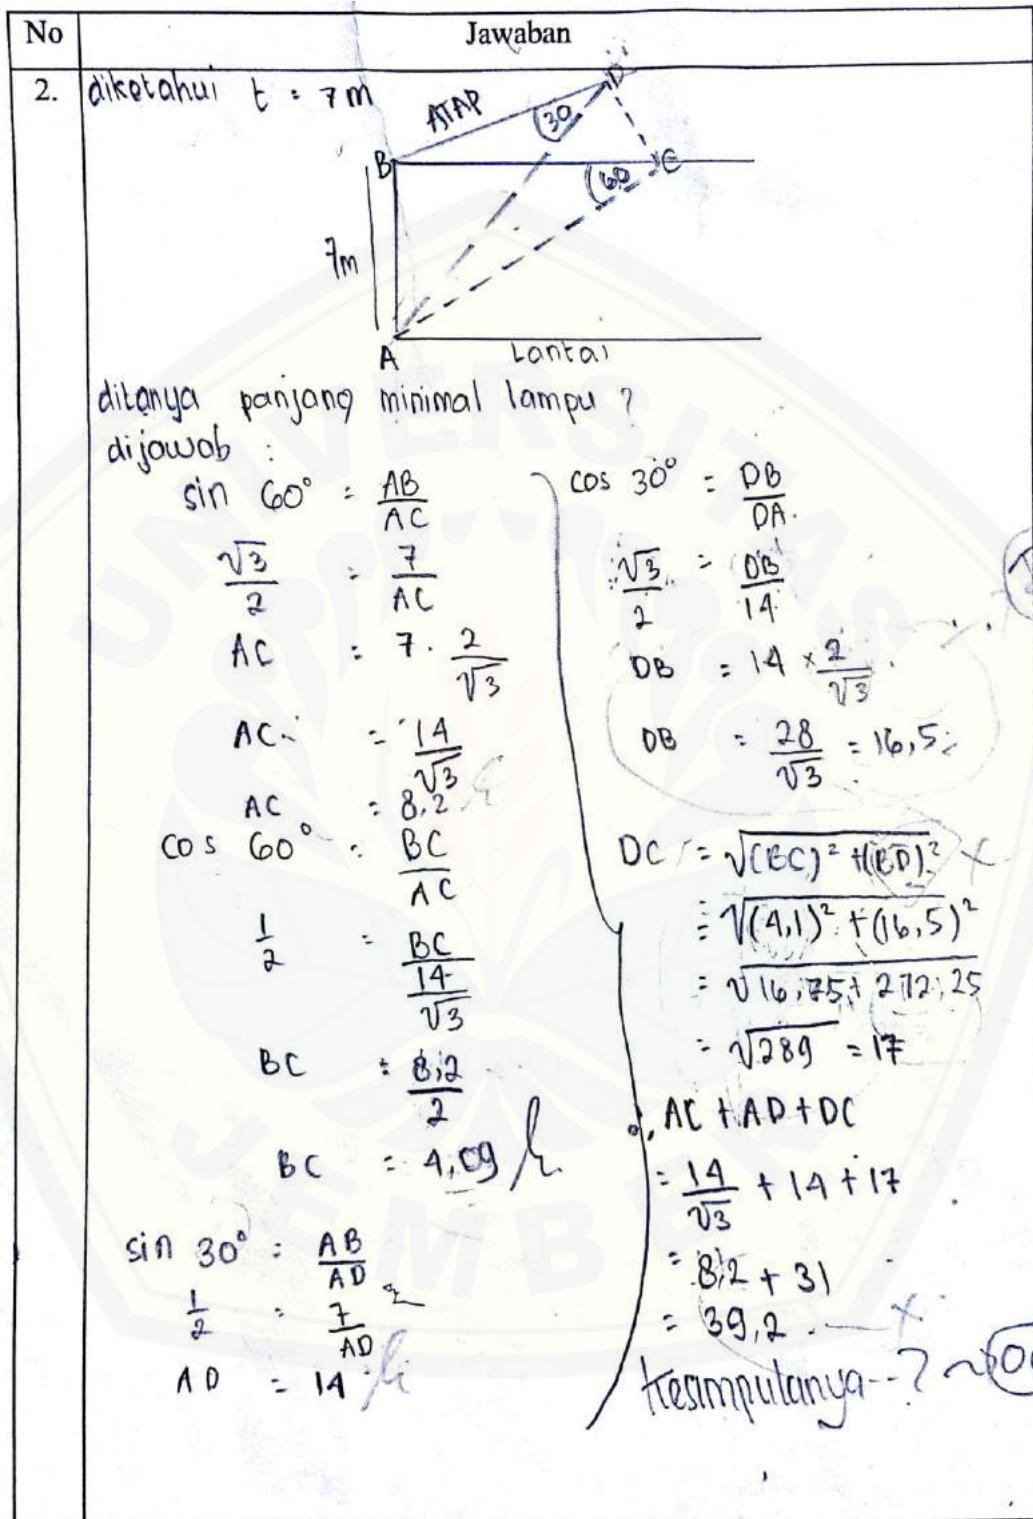 No Jawaban
2. diketahui t = 7 m
ATAP
D
30
B
60
C
7m
A
Lantai
ditanya panjang minimal lampu ?
dijawab :
sin 60° = AB/AC
√3/2 = 7/AC
AC = 7 . 2/√3
AC = 14/√3
AC = 8,2
cos 60° = BC/AC
1/2 = BC/(14/√3)
BC = 8,2/2
BC = 4,09
sin 30° = AB/AD
1/2 = 7/AD
AD = 14
cos 30° = DB/DA
√3/2 = DB/14
DB = 14 × 2/√3
DB = 28/√3 = 16,5
DC = √(BC)² + (BD)²
= √(4,1)² + (16,5)²
= √16,75 + 272,25
= √289 = 17
∴ AC + AD + DC
= 14/√3 + 14 + 17
= 8,2 + 31
= 39,2
Kesimpulanya--?
UNIVERSITAS
JEMBER